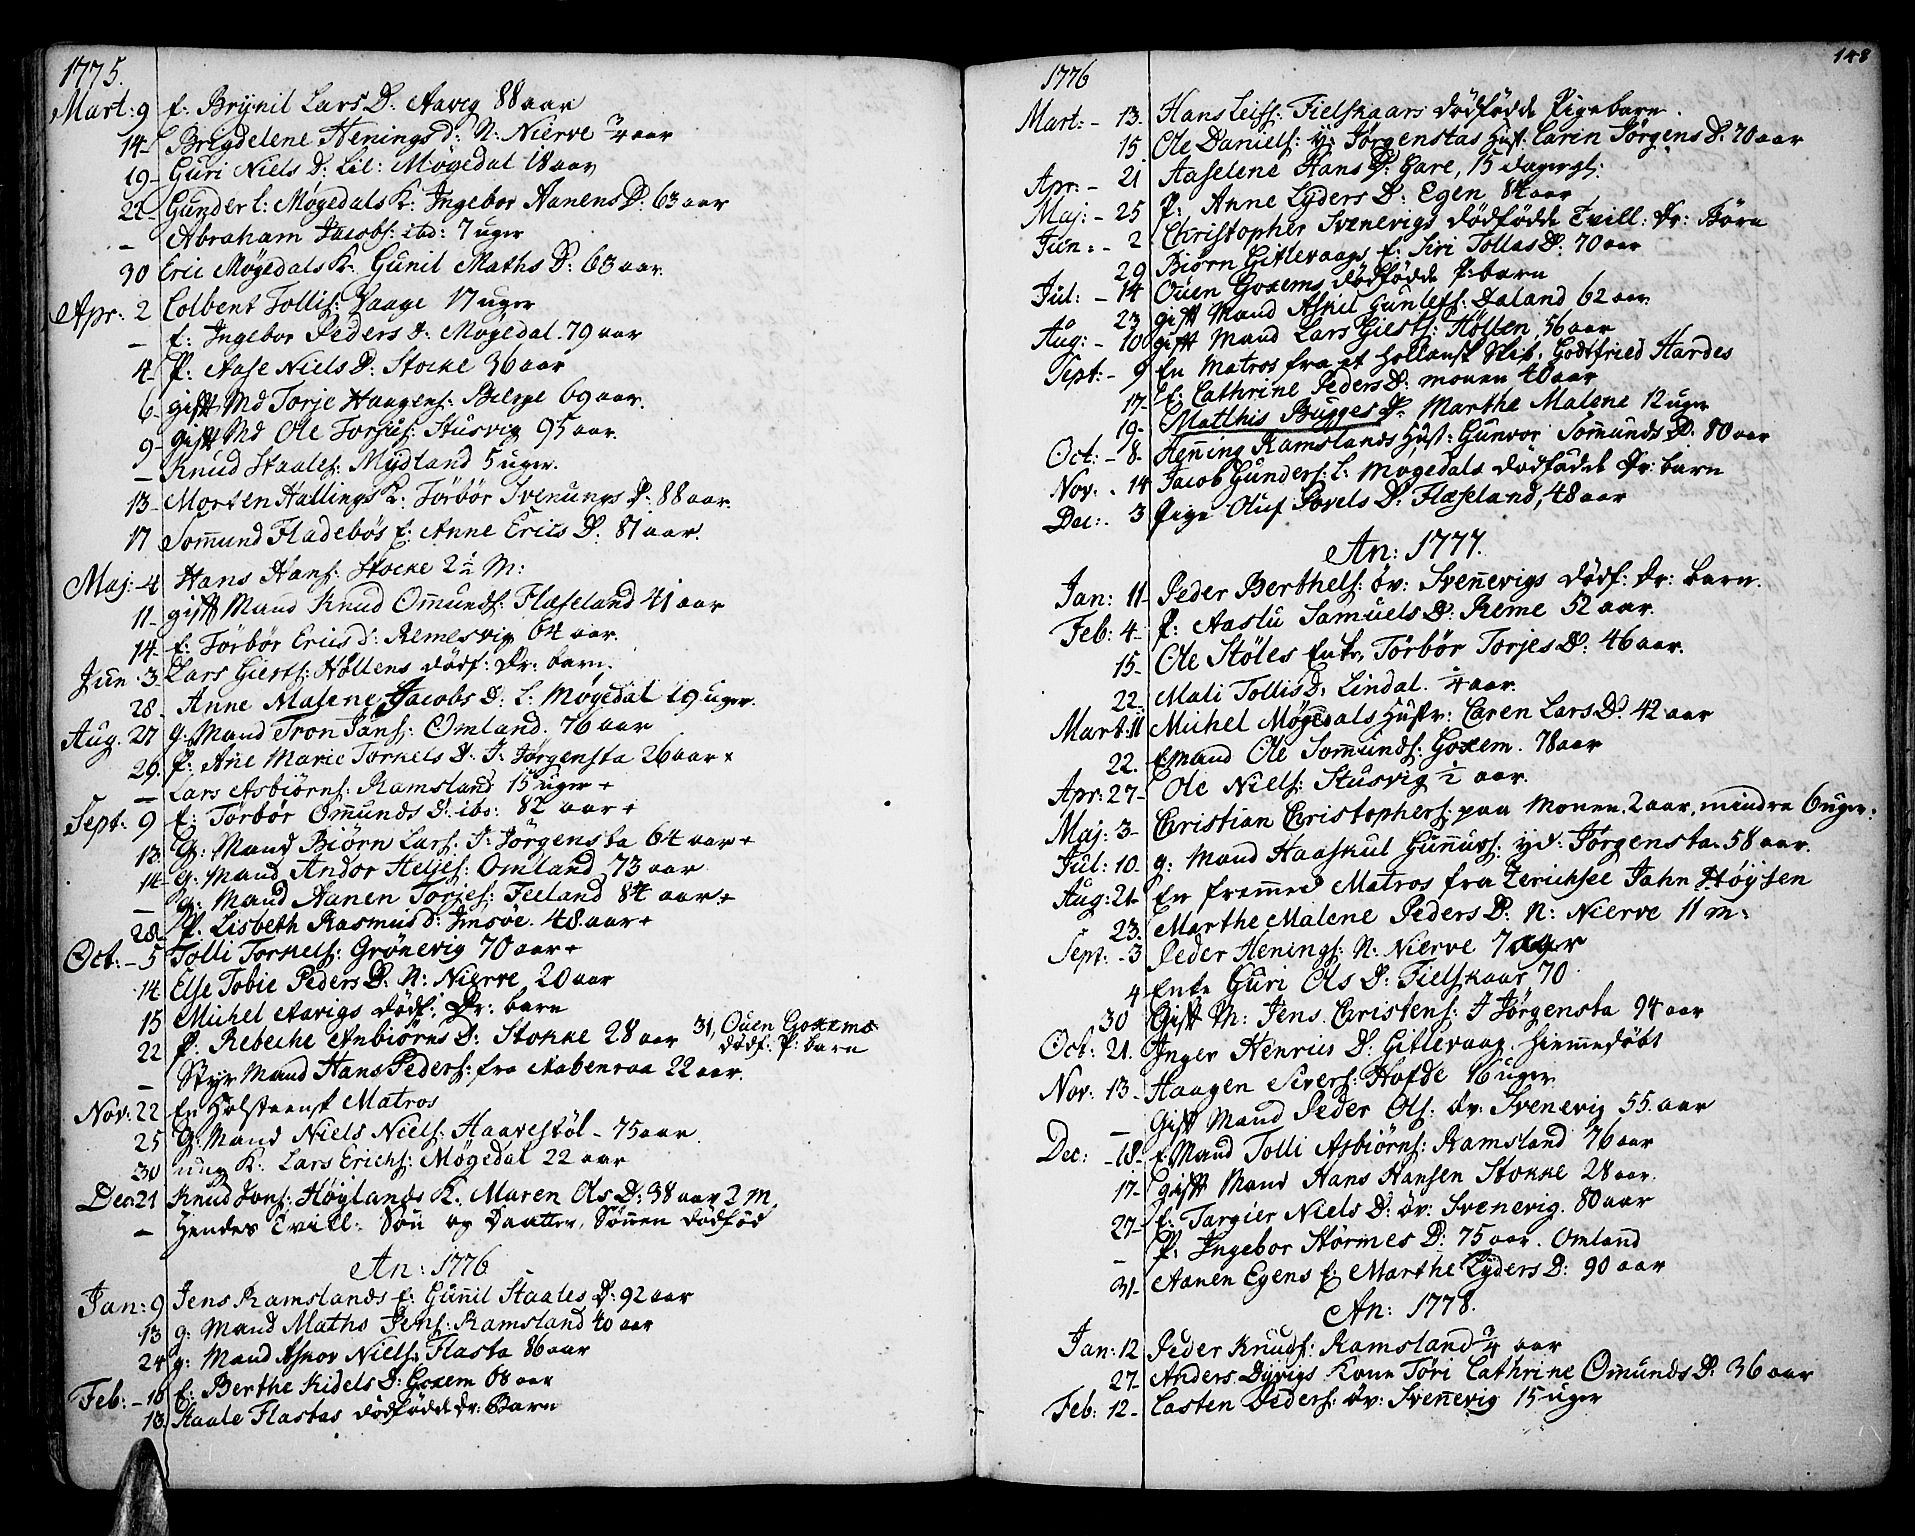 1775.
Mart: 9 E: Brynil Lars D: Aavig 88 aar
14- Brigdelene Henings d: N: Nierve 3/4 aar
19- Guri Niels D: Lil: Møgedal 18 aar
22- Gunder l: Møgedals K: Ingebor Aanens D: 63 aar
— Abraham Jacobs: ibd: 7 uger
30 Eric Møgedals K: Gunil Maths D: 63 aar.
Apr: 2 Colbent Tollis: Vaage 17 uger
— E: Ingebor Peders D: Møgedal. 79 aar
4- P: Aase Niels D: Stocke 36 aar
6- gift Md Torje Haagens: Bleppe 69 aar.
9- gift Md Ole Torjus: Stusvig 95 aar.
— Knud Staales: Mydland 5 uger.
13- Morten Hallings K: Törbör Svenungs D: 88 aar.
17 Somund Fladebøs E: Anne Erics D: 81 aar.
Maj: 4 Hans Hans: Stocke 2 1/2 M:
11- gift Mand Knud Omunds: Flaseland 41 aar
14- E: Törbör Erics d: Remesvig 64 aar.
Jun: 3 Lars Giests: Høllens dödf: Dr: barn.
28. Anne Malene Jacobs D: l: Møgedal 19 uger.
Aug. 27 g: Mand Tron Jans: Omland. 76 aar
29. P: Ane Marie Torkels D: I: Jørgensta 26 aar +
— Lars Asbiörns: Ramsland 15 uger +
Sept: 9 E: Törbör Omunds D: ibd: 82 aar +
13. G: Mand Biörn Lars: I: Jörgensta 64 aar +
14- G: Mand Andor Heljes: Omland 73 aar
— g: Mand Aanen Torjes: Feeland 84 aar. +
28. P: Lisbeth Rasmus d: Imsöe. 48. aar +
Oct: - 5 Tolli Torkels: Grönevig 70 aar +
14 Else Tobie Peders D: N: Nierve 20 aar
15 Michel Aavigs dödf: Dr: barn
22 P: Rebeche Anbiörns D: Stokke 28 aar 31, Ouen Goxems
dödf: P: barn
— Styr Mand Hans Peders: fra Aabenraa 22 aar.
Nov: 22 En Holsteensk Matros
25 G: Mand Niels Niels: Haavestöl - 75 aar.
30 ung K: Lars Erichs: Møgedal 22 aar
Dec: 21 Knud Jons: Høylands K. Maren Ols D: 38 aar 2 M.
— Hendes Tvill: Søn og Daatter, Sønen dödföd
An: 1776
Jan: 9 Jens Ramslands E: Gunil Staales D: 92 aar
13 g: Mand Maths Jens: Ramsland 40 aar
24 g: Mand Asnor Niels: Flasta 86 aar
Feb: - 10 E: Berthe Kidels D: Goxem 68 aar
13. Staale Flastas dödfödde Dr: Barn
148
1776
Mart: - 13. Hans Leifs: Fielskaars dödfödde Pigebarn.
15 Ole Daniels: y: Jørgenstas Hust: Caren Jörgens D: 70 aar
Apr: - 21 Aaselene Hans D: Hare, 15 dager gl:
Maj: - 25 P: Anne Lyders D: Egen 84 aar
Jun: - 2 Christopher Svenevigs dödfödde Tvill: Dr: Börn
29 Biörn Gitlevaags E: Siri Tollas D: 70 aar
Jul: - 14 Ouen Goxems dödfödde P: barn
23 gift Mand Askil Gunlefs: Daland 62 aar
Aug: - 10 gift Mand Lars Giests: Höllen 56 aar
Sept: - 9 En Matros fra et Hollansk Skib, Godtfried Hardes
17- E: Cathrine Peders D: monen 40 aar
19- Matthis Bugges D: Marthe Malene 12 uger
Oct: - 8- Hening Ramslands Hust: Gunvor Somunds D: 80 aar
Nov: - 14 Jacob Gunders: l: Møgedals dödfödde Dr: barn
Dec: - 3 Pige Oluf Povels D: Flaseland, 48 aar
An: 1777.
Jan: 11- Peder Berthels: öv: Svenevigs dödf: Dr: barn.
Feb: 4- P: Aaslu Samuels D: Reme 52 aar.
15. Ole Stöles Enke, Törbör Torjes D: 46 aar.
22. Mali Tollis D: Lindal. 1/4 aar.
Mart: 11 Michel Møgedals Hustr: Caren Lars D: 42 aar
22. E Mand Ole Somunds: Goxem. 78 aar
Apr: 27- Ole Niels: Stusvig 1/2 aar.
Maj: 3- Christian Christophers: paa Monen 2 aar, mindre 6 uger:
Jul: 10. g: Mand Haaskul Gunuss: yd: Jörgensta. 58 aar.
Aug: 21- En fremmed Matros fra Zerichsee Jahn Høysen
23. Marthe Malene Peders D: N: Nierve 11 m:
Sept: - 3 Peder Henings: N: Nierve 7 uger
4 Enke Guri Ols D: Fielskaar 70
30 Gift M: Jens Christens: I Jörgensta 94 aar
Oct: 21. Inger Henrics D: Gitlevaag. hiemmedöbt
Nov: 13- Haagen Sivers: Hofde 16 uger
— Gift Mand Peder Ols: öv: Svenevig 55 aar
Dec: - 18- E: Mand Tolli Asbiörns: Ramsland 76 aar
17- gift Mand Hans Hansen Stokke 28 aar.
27- E: Targier Niels D: öv: Svenevig. 80 aar
— P: Ingebor Störmes D: 75 aar. Omland
31- Aanen Egens E: Marthe Lyders D: 90 aar
An: 1778.
Jan: 12 Peder Knuds: Ramsland 3/4 aar
27- Anders Dyvigs Kone Töri Cathrine Omunds D: 36 aar
Feb: 12- Casten Peders: öv: Svenevig 15 uger